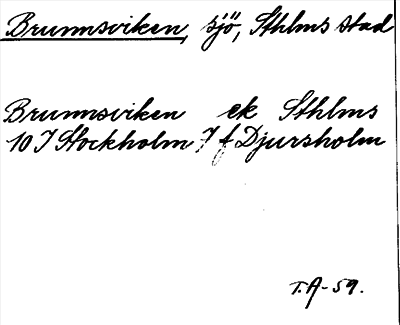 Brunnsviken, sjö, Sthlms stad
Brunnsviken ek Sthlms
10 I Stockholm 7 f Djursholm
T.A-59.